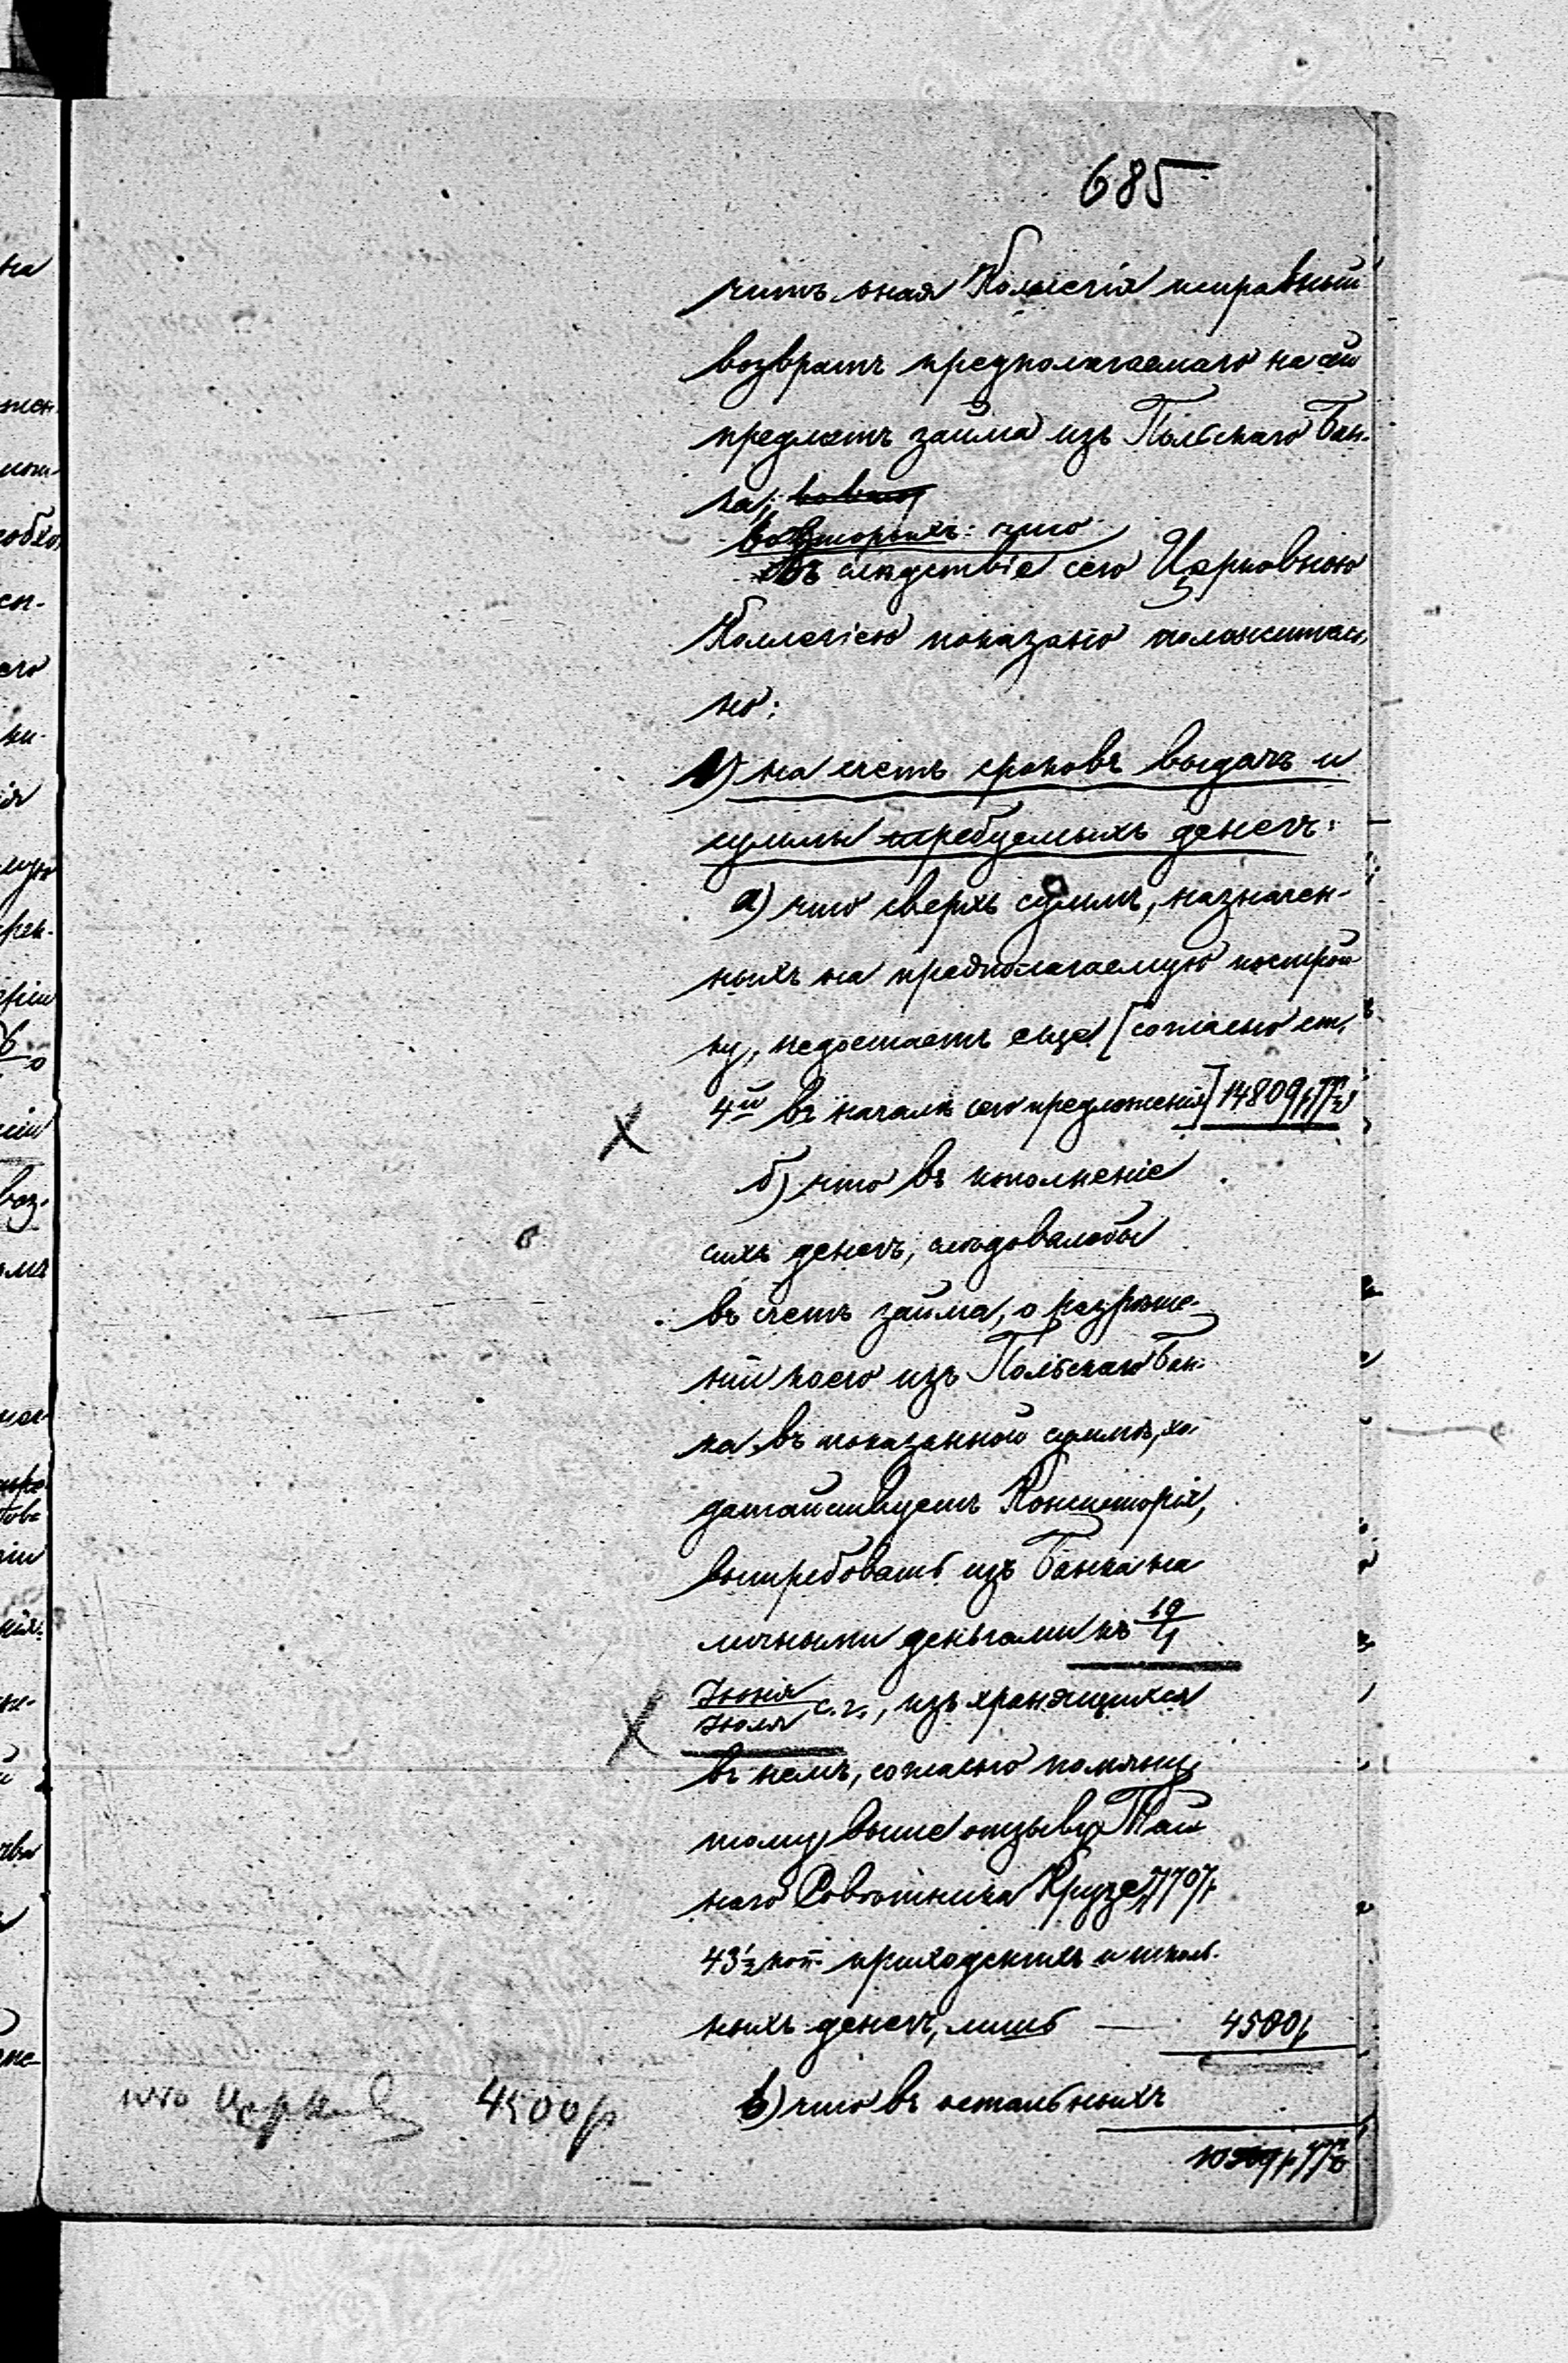 685
читъ оная Коллегія исправный
возвратъ предполагаемаго на сей
предметъ займа изъ Польскаго Бан-
ка;
вовторыхъ: что
въ слѣдствіе сего Церковною
Коллегіею показано положитель
но:
1) на счетъ сроковъ выдачъ и
суммы требуемыхъ денегъ:
а) что сверхъ суммъ, назначен-
ныхъ на предполагаемую построй
ку, недостаетъ еще [согласно ст.
4й въ началѣ сего предложенія] 14809р.
б) что въ пополненіе
сихъ денегъ, слѣдовалобы
въ счетъ займа, о разрѣше-
ніи коего изъ Польскаго Бан-
ка въ показанной суммѣ, хо-
датайствуетъ Консисторія,
вытребовать изъ Банка на
личными деньгами къ 19/1
Іюня/Іюля с.г., изъ хранящихся
въ немъ, согласно помяну
тому выше отзыву Тай
наго Совѣтника Крузе, 7707р
43½ коп. приходскихъ и школь-
ныхъ денегъ, лишь — 4500р
в) что въ остальныхъ
4500р